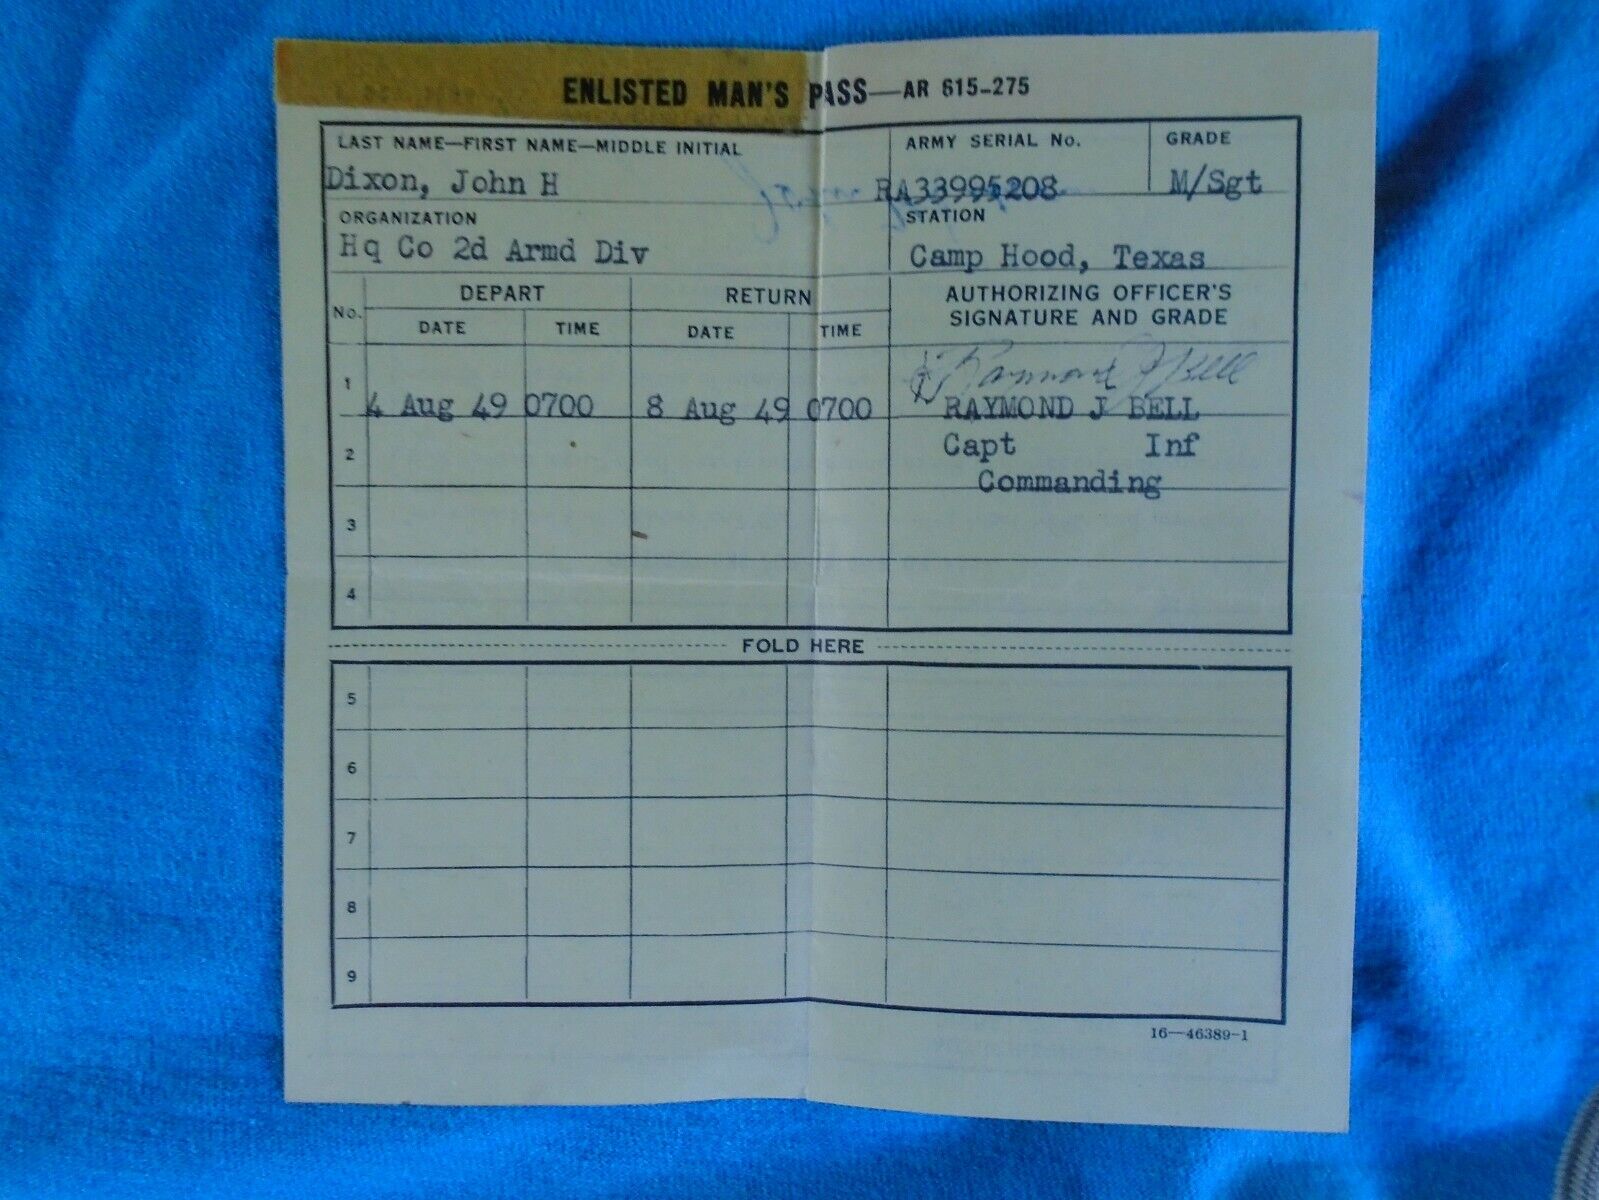 ENLISTED MAN'S PASS—AR 615-275
LAST NAME—FIRST NAME—MIDDLE INITIAL
ARMY SERIAL No.
GRADE
Dixon, John H
RA33995208
M/Sgt
ORGANIZATION
STATION
Hq Co 2d Armd Div
Camp Hood, Texas
No.
DEPART
RETURN
AUTHORIZING OFFICER'S
SIGNATURE AND GRADE
DATE
TIME
DATE
TIME
1
4 Aug 49 0700 8 Aug 49 0700
Raymond J Bell
RAYMOND J BELL
2
Capt Inf
Commanding
3
4
FOLD HERE
5
6
7
8
9
16—46389-1